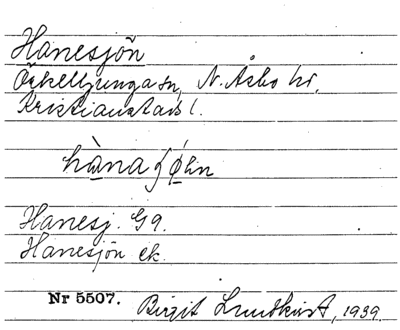 Hanesjön
Örkelljunga sn, N. Åsbo hd.
Kristianstads l.
hànaʃøhn
Hanesj. G9.
Hanesjön ek.
Nr 5507. Birgit Lundkvist, 1939.